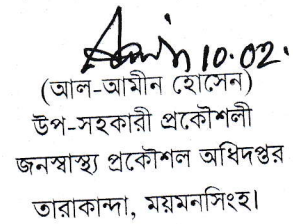 10.02.
(আল-আমীন হোসেন)
উপ-সহকারী প্রকৌশলী
জনস্বাস্থ্য প্রকৌশল অধিদপ্তর
তারাকান্দা, ময়মনসিংহ।